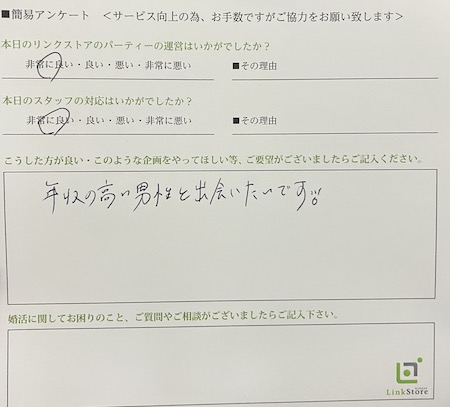 ■簡易アンケート ＜サービス向上の為、お手数ですがご協力をお願い致します＞
本日のリンクストアのパーティーの運営はいかがでしたか？
非常に良い・良い・悪い・非常に悪い ■その理由
本日のスタッフの対応はいかがでしたか？
非常に良い・良い・悪い・非常に悪い ■その理由
こうした方が良い・このような企画をやってほしい等、ご要望がございましたらご記入ください。
年収の高い男性と出会いたいです
婚活に関してお困りのこと、ご質問やご相談がございましたらご記入下さい。
LinkStore